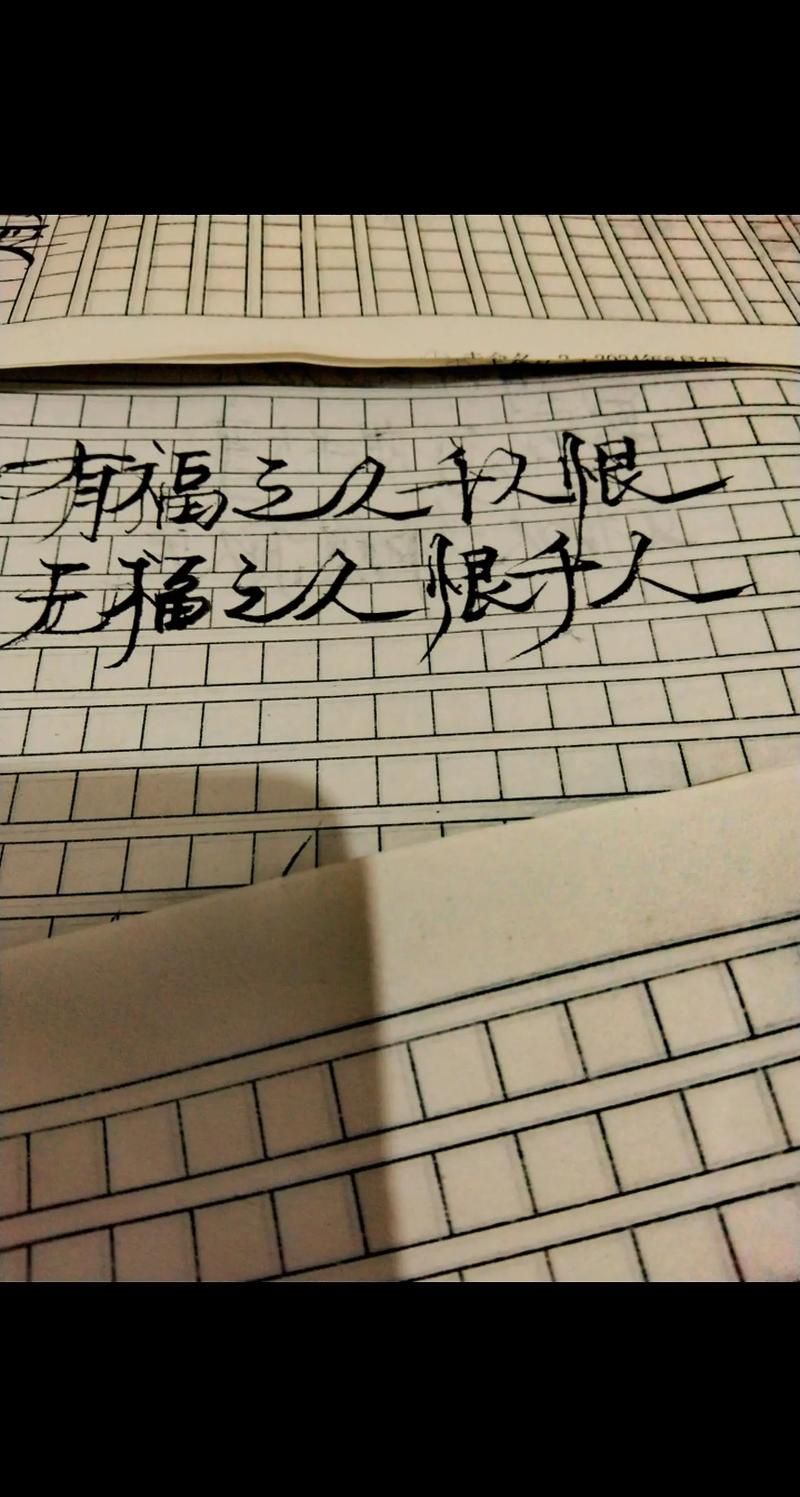 有福之人千人恨
无福之人恨千人